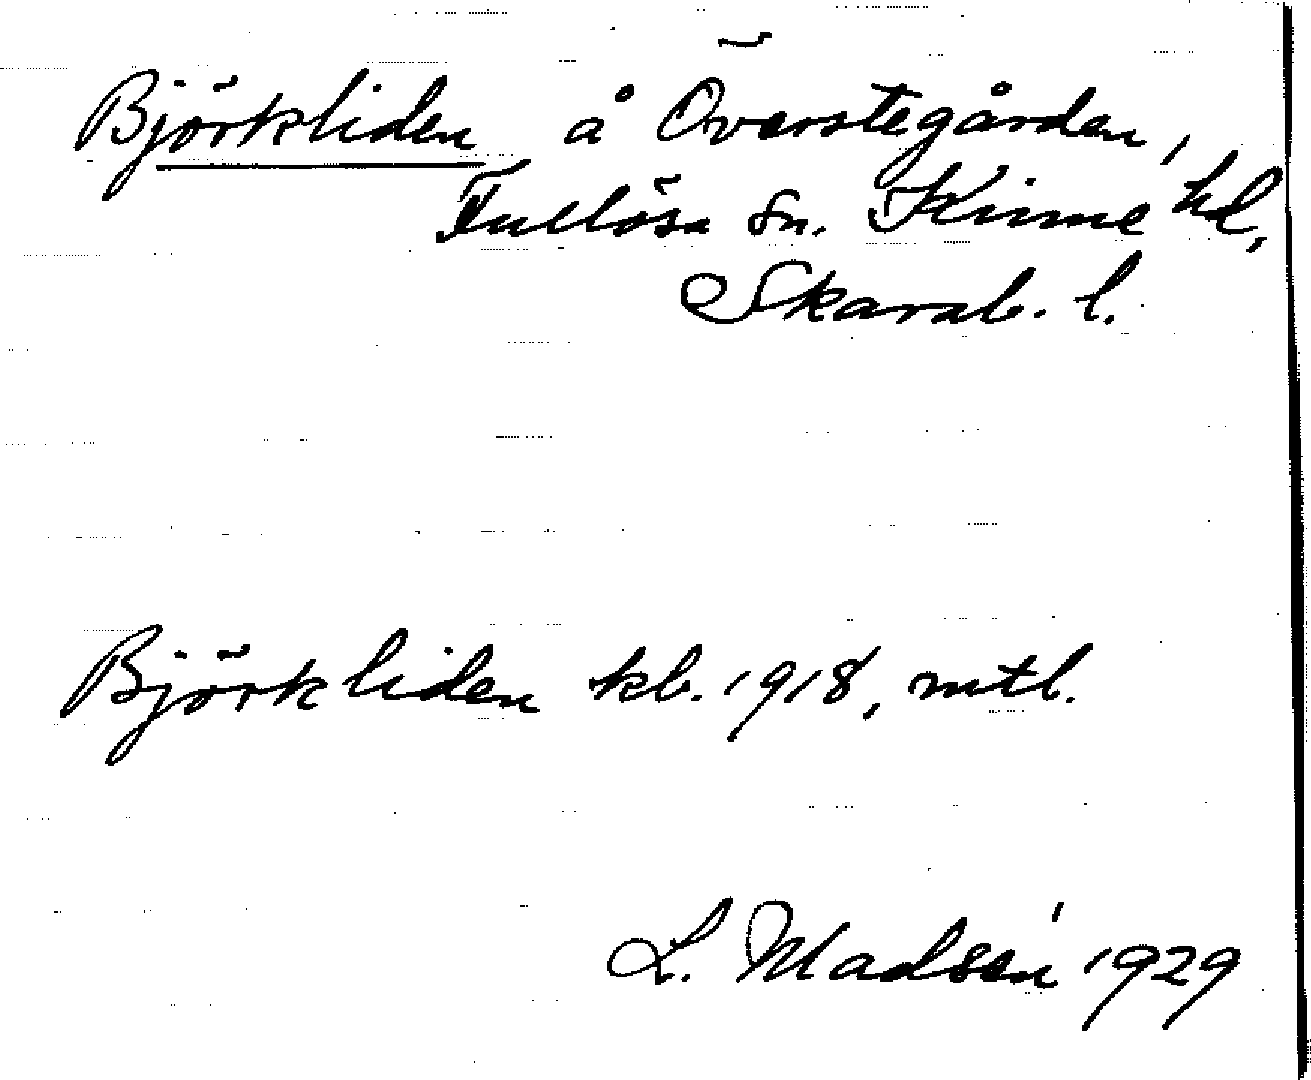 Björkliden å Överstegården,
Fullösa sn. Kinne hd,
Skarab. l.
Björkliden kb. 1918, mtl.
L. Madsén 1929